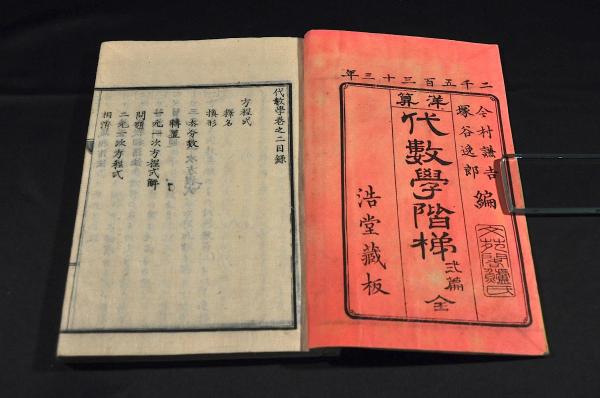 二千五百三十三年
洋算
今村謙吉
塚谷逸郎
編
代數學階梯
弍篇 全
浩堂藏板
代數學卷之二目録
方程式
釋名
換形
去分數
轉置
一元一次方程式解
問題
二元一次方程式
相消